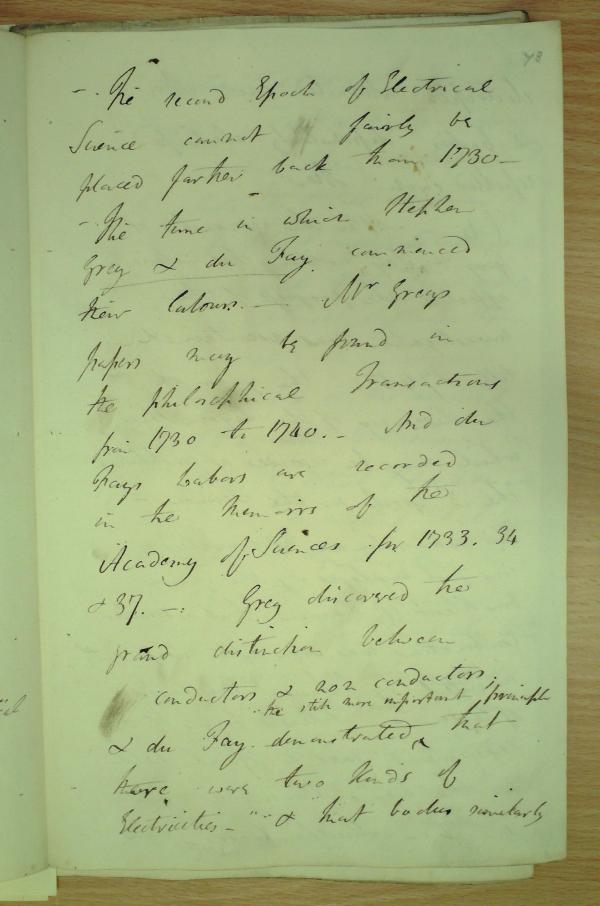 78
-. The second Epoch of Electrical
Science cannot fairly be
placed farther back than 1730 -
-. The time in which Stephen
Grey & du Fay commenced
their labours. - Mr Greys
papers may be found in
the philosophical Transactions
from 1730 to 1740. - And du
Fays labors are recorded
in the Memoirs of the
Academy of Sciences for 1733. 34
& 37. -: Grey discovered the
grand distinction between
conductors & non conductors;
the still more important principle
& du Fay demonstrated that
there were two kinds of
Electricities - & that bodies similarly